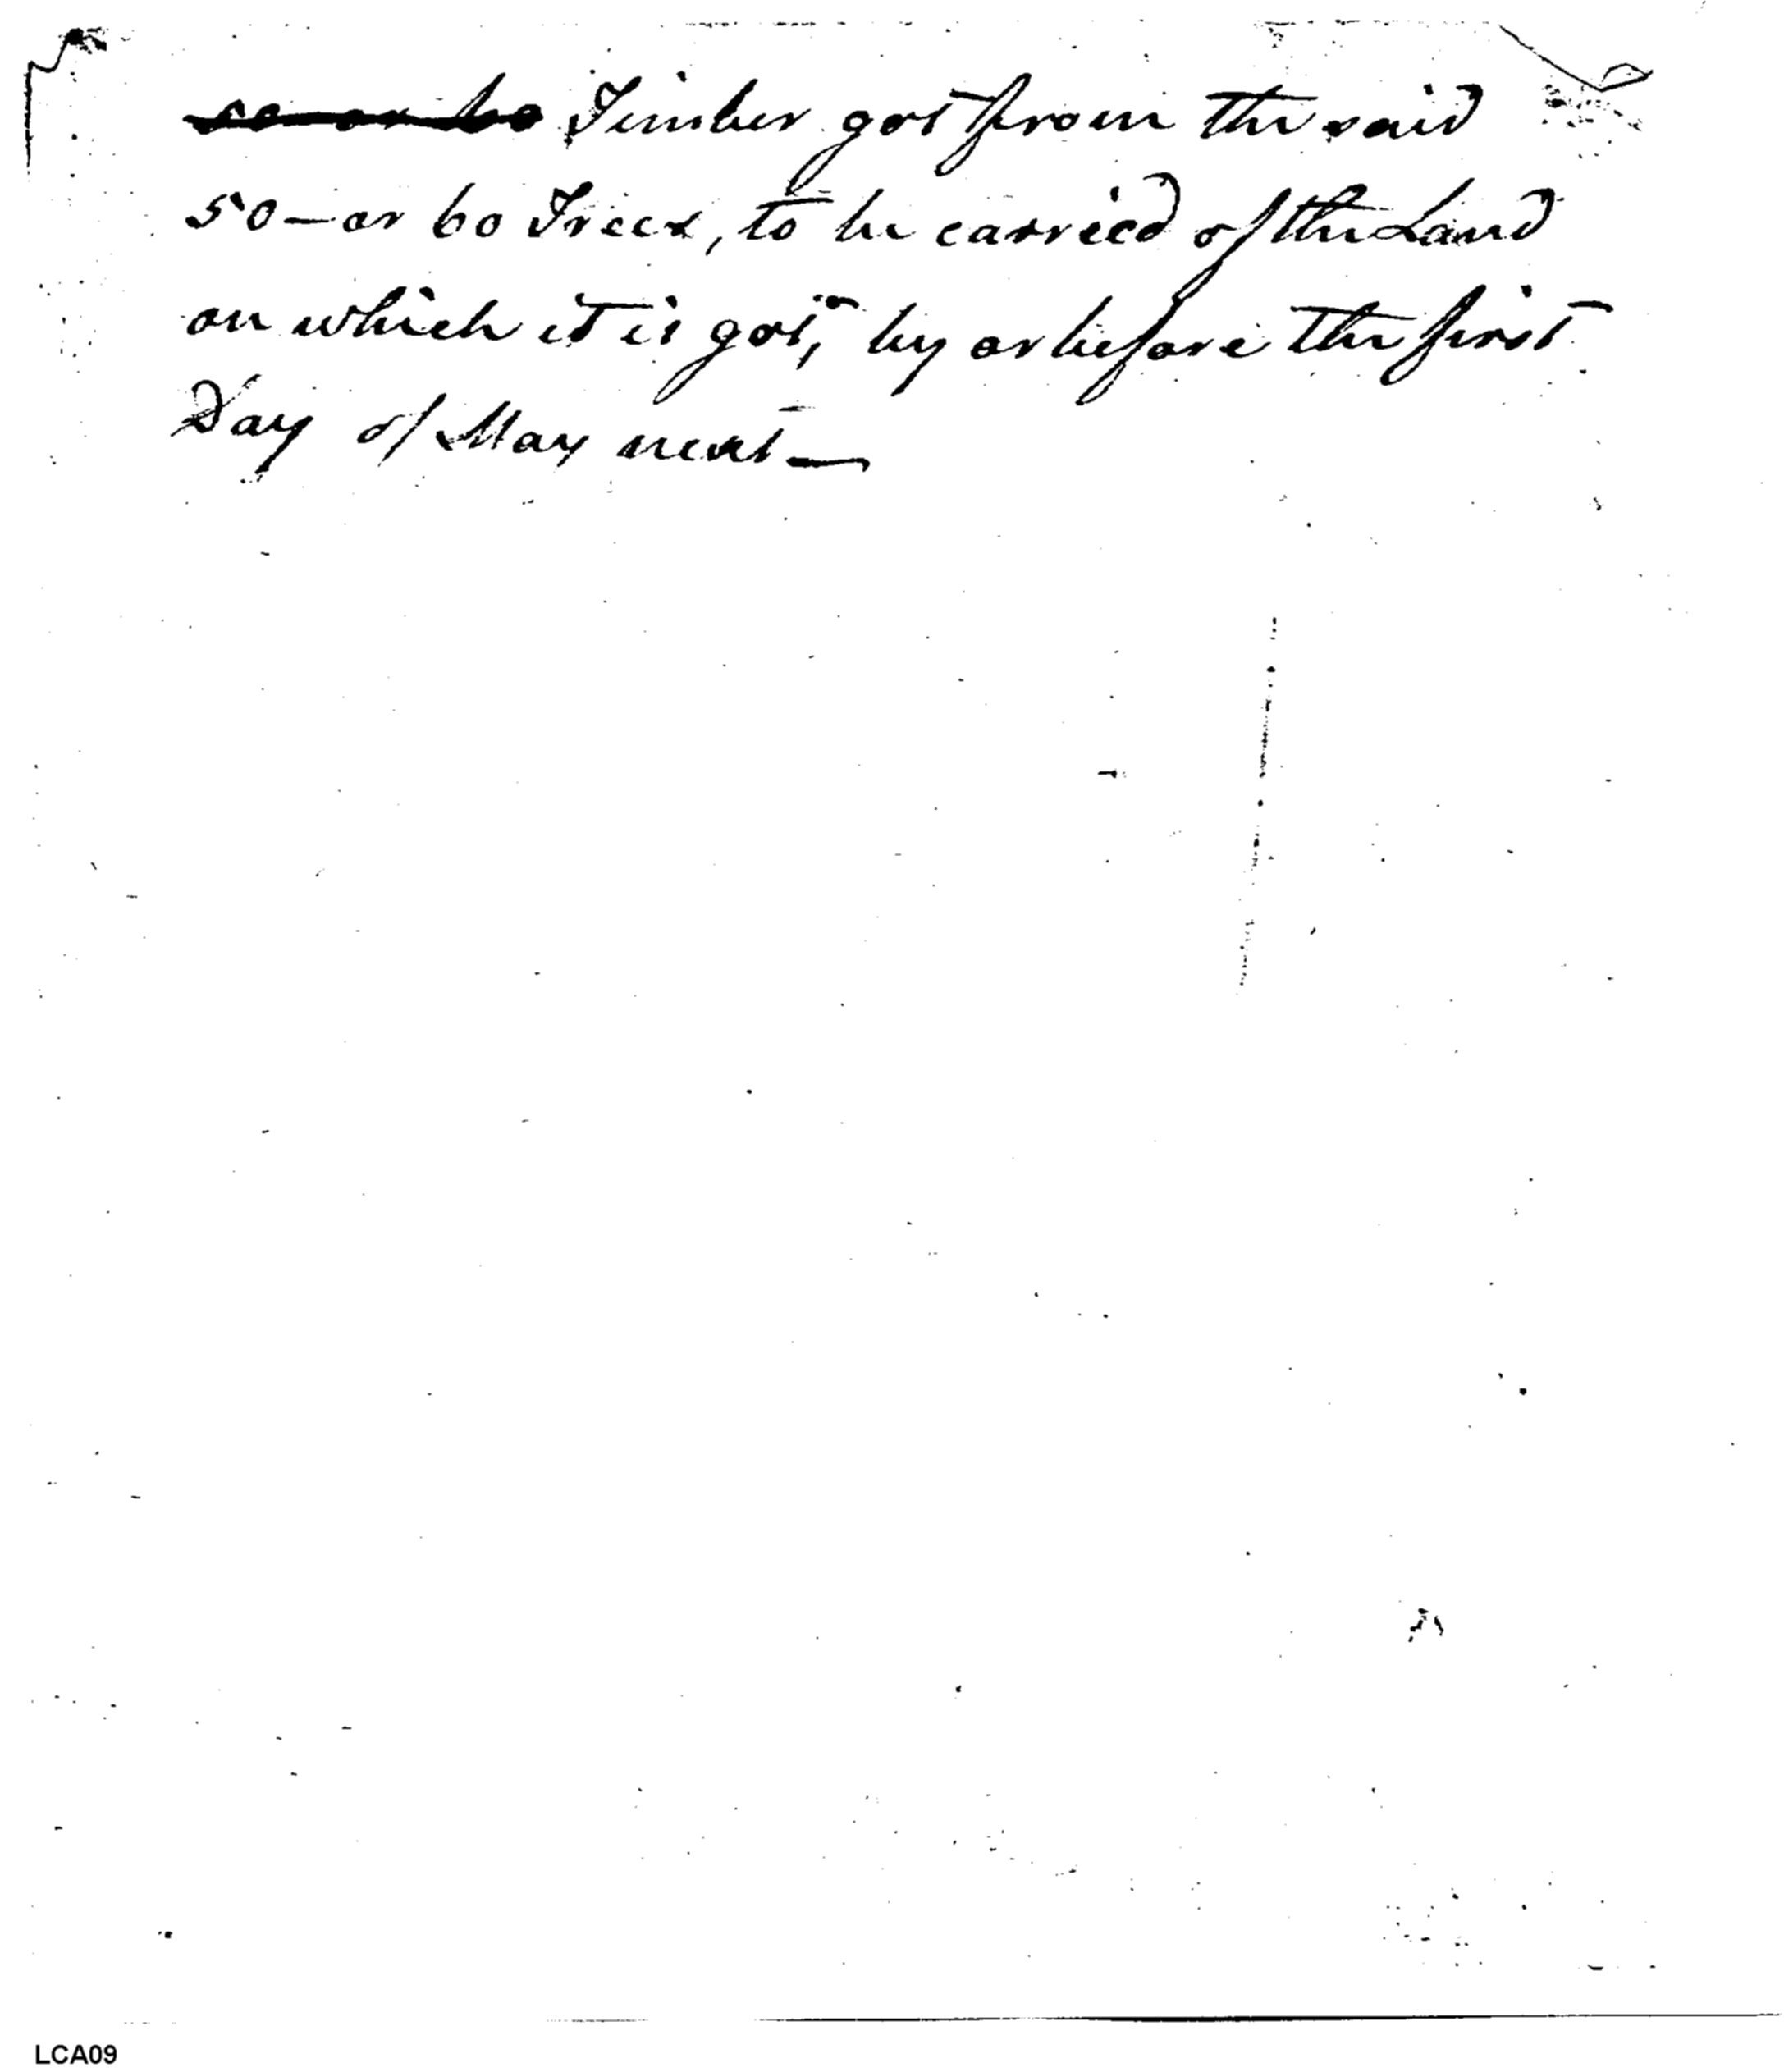 Timber got from the said
50 — or 60 Trees, to be carried of the Land
on which it is got, by or before the first
Day of May next —
LCA09